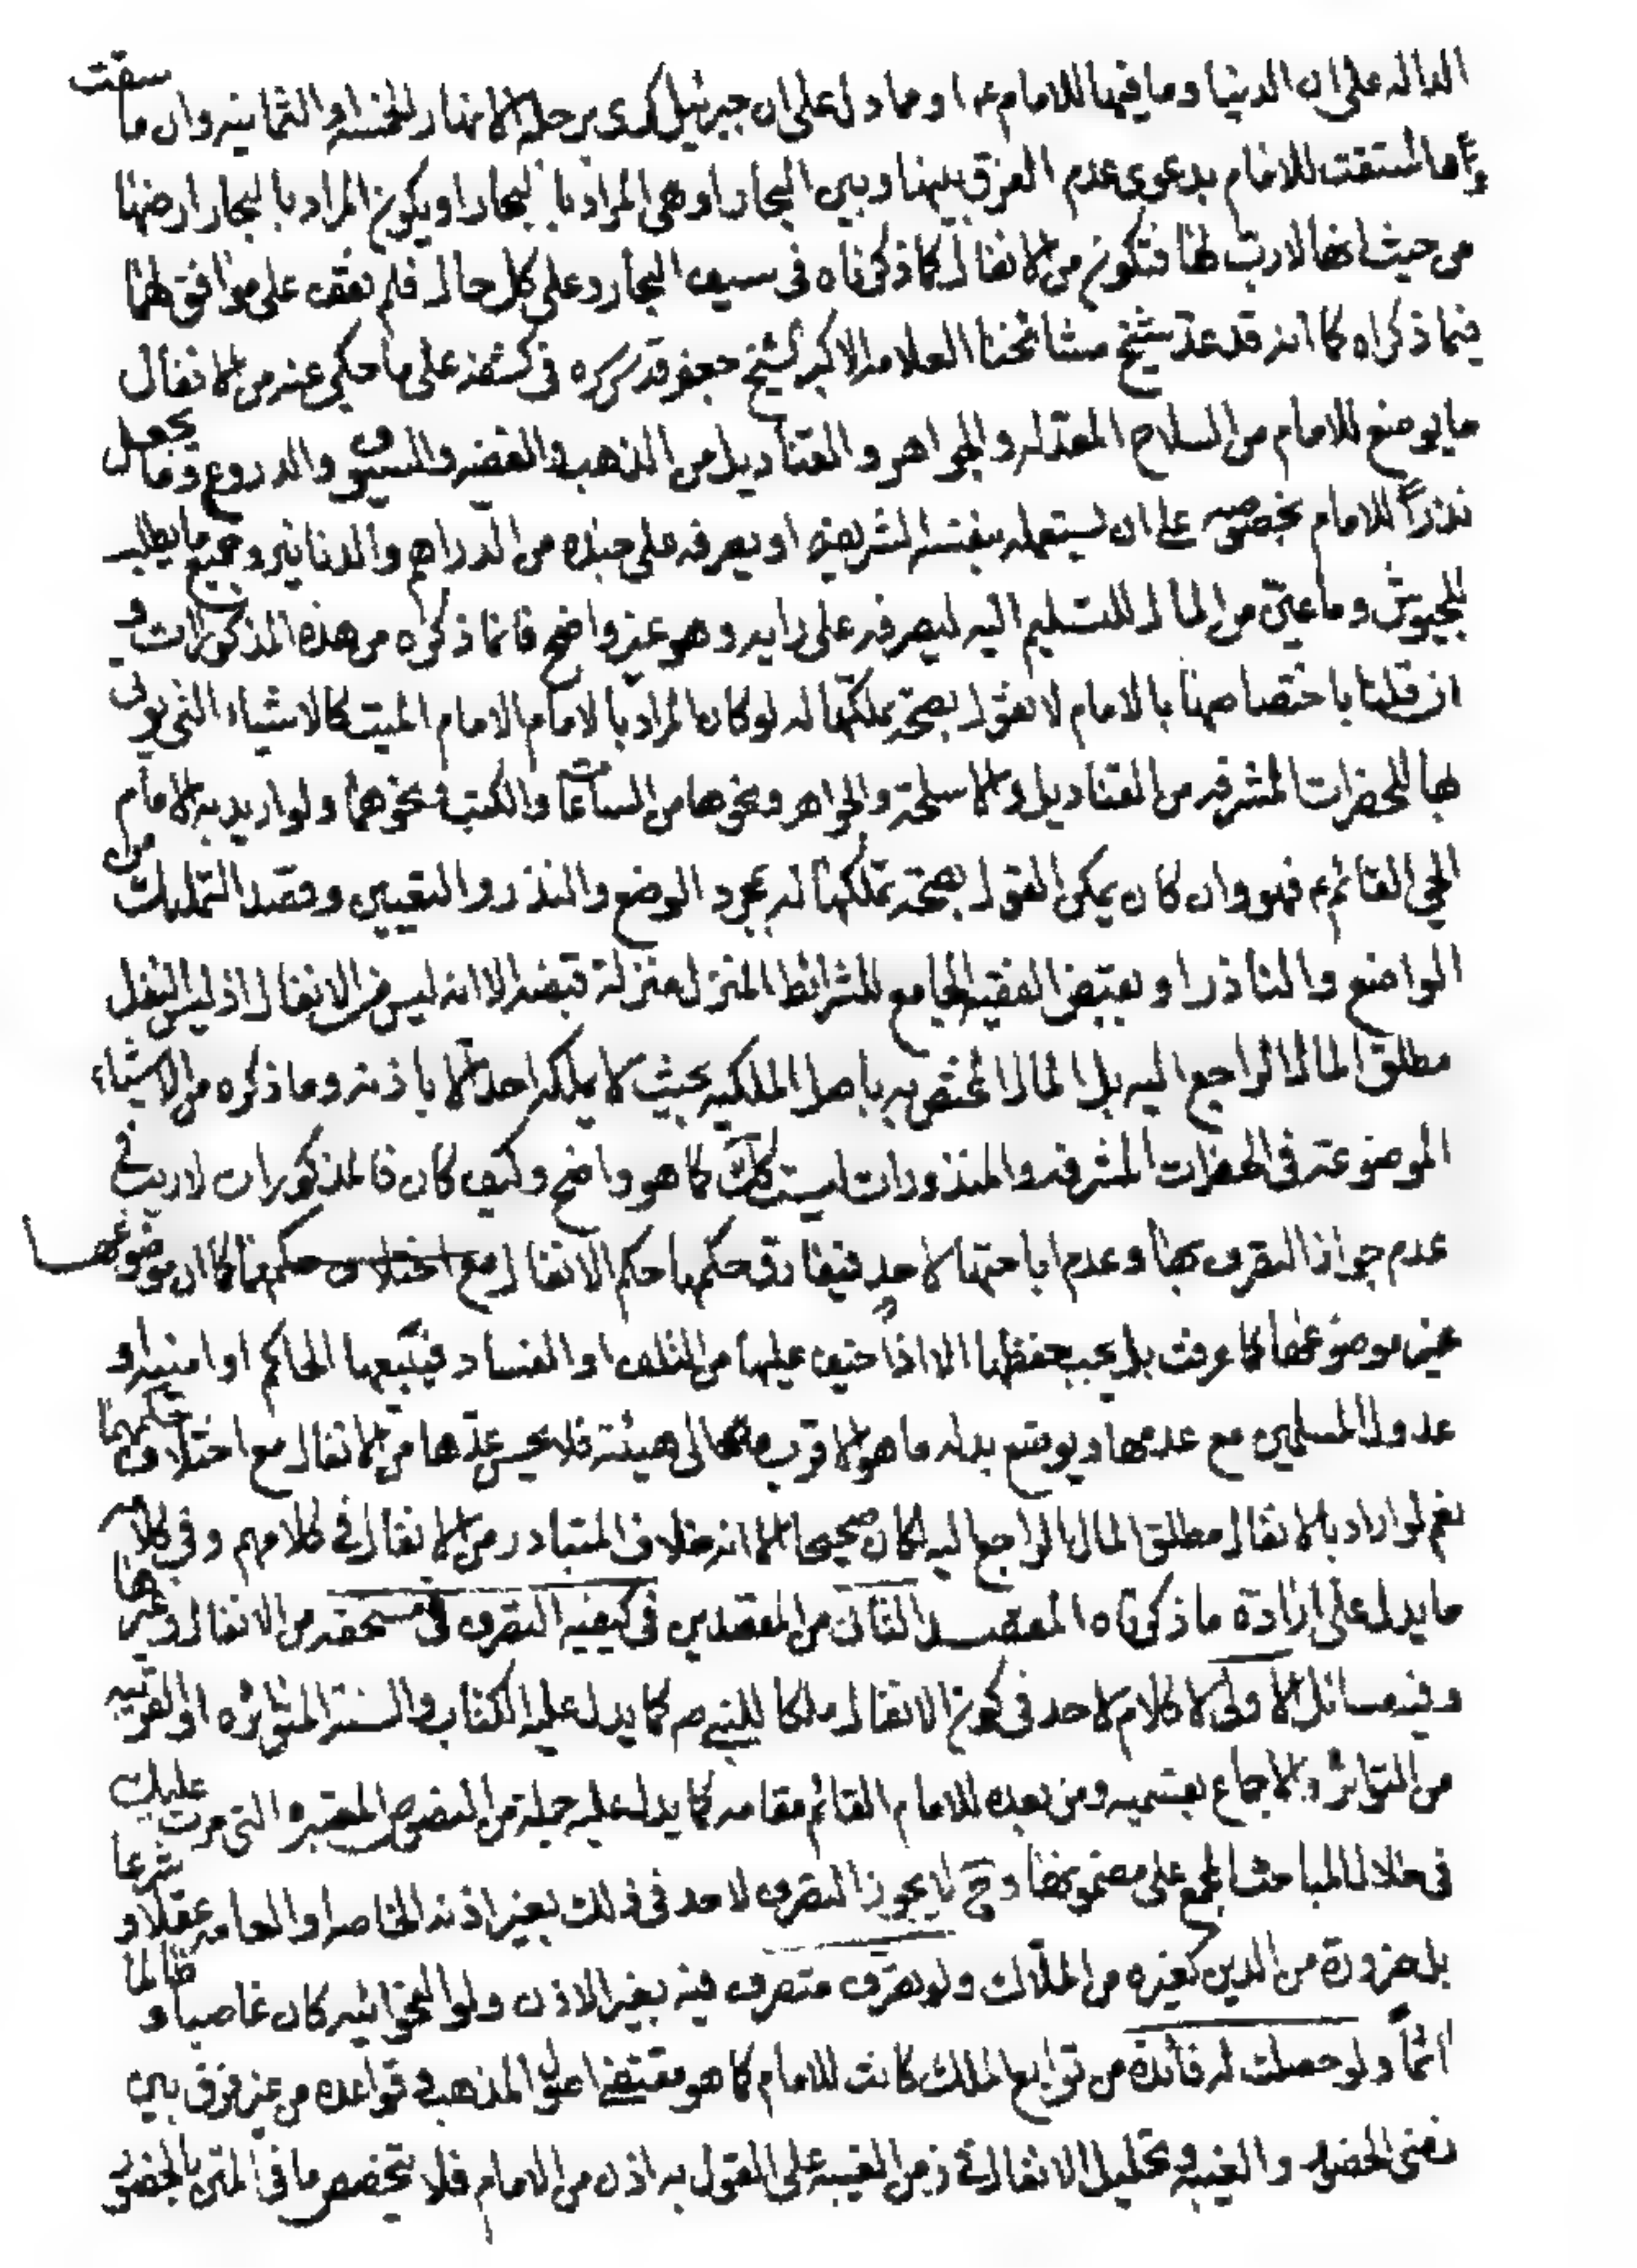 الداله على ان الدنيا وما فيها للامام ع او مما دل على ان جبرئيل كرى برجله الانهار الخمسة او الثمانية وان ما سقت
او استقت للامام بدعوى عدم الفرق بينها وبين البحار او هى المراد بالبحار او يكون المراد بالبحار ارضها
من حيث انها لا رب لها فتكون من الانفال كما ذكرناه فى سيف البحار وعلى كل حال فلم نقف على موافق لهما
فيما ذكراه كما انه قد عد شيخ مشائخنا العلامه الاكبر الشيخ جعفر قدس سره فى كشفه على ما حكى عنه من الانفال
ما يوضع للامام من السلاح المعد له والجواهر والقناديل من الذهب والفضه والسيوف والدروع وما يجعل
نذراً للامام بخصوصه على ان يستعمله بنفسه الشريفه او يصرفه على جنده من الدراهم والدنانير وجميع ما يطلبه
للجيوش وما عين من المال للتسليم اليه ليصرفه على رايه وهو غير واضح فانما ذكره من هذه المذكورات و
ان قلنا باختصاصها بالامام لا نقول بصحة تملكها له لو كان المراد بالامام الامام الميت كالاشياء التى يؤتى
بها للحضرات المشرفه من القناديل والاسلحة والجواهر ونحوها من الساعات والكتب ونحوهما ولو اريد به الامام
الحى القائم ع فهو وان كان يمكن القول بصحة تملكها له بمجرد الوضع والنذر والتعيين وقصد التمليك من
الواضع والناذر او بقبض الفقيه الجامع للشرائط المنزل منزلة قبضه الا انه ليس من الانفال اذ ليس النفل
مطلق المال الراجع اليه بل المال المختص به باصل الملكيه بحيث لا يملكه احد الا باذنه وما ذكره من الاشياء
الموضوعة فى الحضرات المشرفه والمنذورات ليست كك كما هو واضح وكيف كان فالمذكورات لا ريب فى
عدم جواز التصرف بها وعدم اباحتها لاحد فيفارق حكمها حكم الانفال مع اختلاف حكمها كما ان موضوعها
غير موضوعها كما عرفت بل يجب حفظها الا اذا خيف عليها من التلف او الفساد فيبيعها الحاكم او امنيه او
عدول المسلمين مع عدمها ويوضع بدله ما هو الاقرب الى هيئته فلا يحسن عدها من الانفال مع اختلاف حكمهما
نعم لو اراد بالانفال مطلق المال الراجع اليه لكان صحيحا الا انه خلاف المتبادر من الانفال فى كلامهم وفى كلامه
ما يدل على ارادة ما ذكرناه المقصد الثانى من المقصدين فى كيفيه التصرف فى مستحقه من الانفال وغيرها
وفيه مسائل الاولى لا كلام لاحد فى كون الانفال ملكا للنبى ص كما يدل عليه الكتاب والسنة المتواتره او القريبه
من التواتر والاجماع بقسميه ومن بعده للامام القائم مقامه كما يدل عليه جملة من النصوص المعتبره التى مرت عليك
فى خلال المباحث المجمع على مضمونها وح لا يجوز التصرف لاحد فى ذلك بغير اذنه الخاصه او العامه عقلا وشرعا
بل ضرورة من الدين كغيره من الملاك ولو تصرف متصرف فيه بغير الاذن ولو الفحوائيه كان غاصبا وظالما
آثماً ولو حصلت له فائدة من توابع الملك كانت للامام كما هو مقتضى اصول المذهب وقواعده من غير فرق بين
زمنى الحضور والغيبه وتحليل الانفال فى زمن الغيبه على القول به اذن من الامام فلا يتخصص ما فى المتن بالحضور